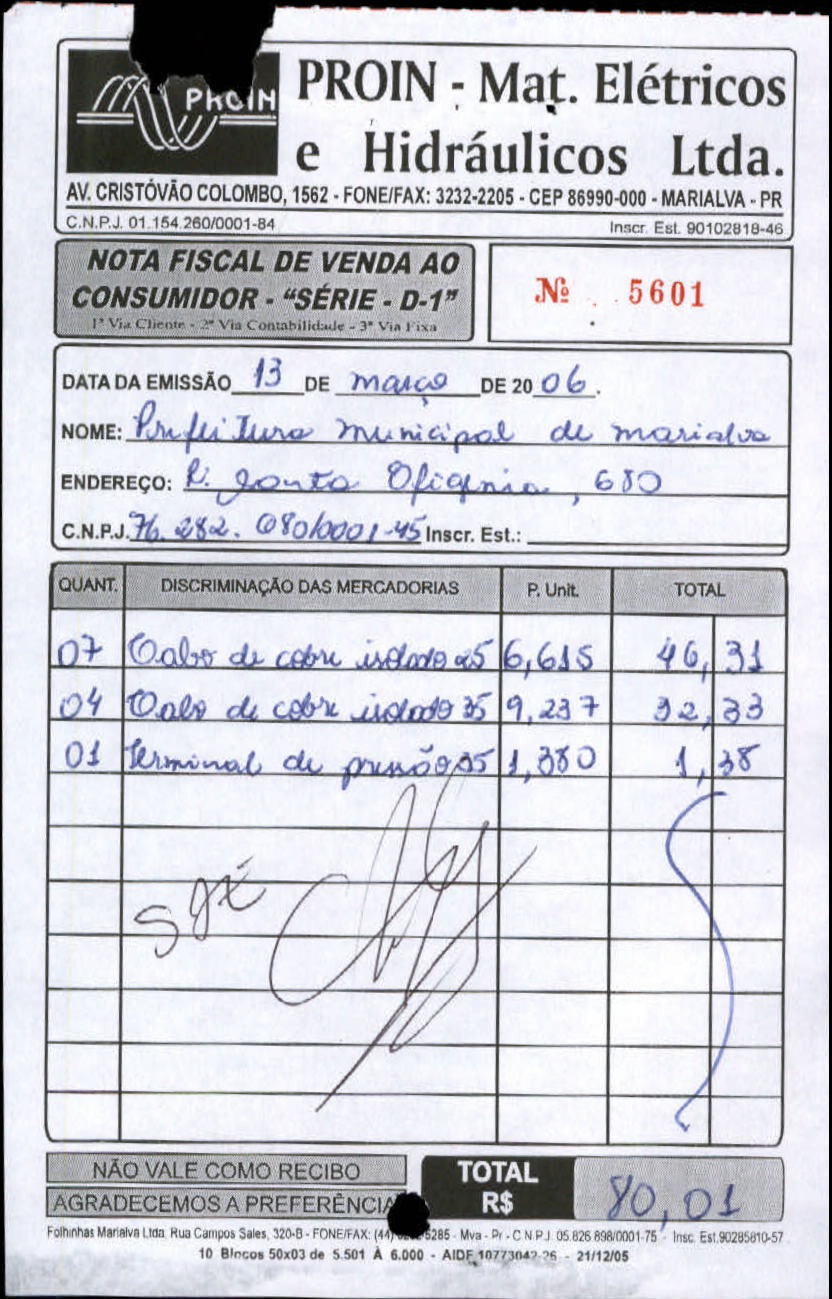 PROIN
PROIN - Mat. Elétricos
e Hidráulicos Ltda.
AV. CRISTÓVÃO COLOMBO, 1562 - FONE/FAX: 3232-2205 - CEP 86990-000 - MARIALVA - PR
C.N.P.J. 01.154.260/0001-84 Inscr. Est. 90102818-46
NOTA FISCAL DE VENDA AO
CONSUMIDOR - “SÉRIE - D-1”
1ª Via Cliente - 2ª Via Contabilidade - 3ª Via Fixa
Nº 5601
DATA DA EMISSÃO 13 DE março DE 20 06.
NOME: Prefeitura municipal de marialva
ENDEREÇO: R. Santa Efigenia, 680
C.N.P.J. 76.282.680/0001-45 Inscr. Est.:
QUANT. DISCRIMINAÇÃO DAS MERCADORIAS P. Unit. TOTAL
07 Cabo de cobre isolado 25 6,615 46,31
04 Cabo de cobre isolado 35 9,237 32,33
01 Terminal de pressão 35 1,380 1,38
NÃO VALE COMO RECIBO
AGRADECEMOS A PREFERÊNCIA
TOTAL
R$ 80,01
Folhinhas Marialva Ltda. Rua Campos Sales, 320-B - FONE/FAX: (44) 5285 - Mva - Pr - C.N.P.J. 05.826.898/0001-75 - Insc. Est.90285810-57
10 Blocos 50x03 de 5.501 À 6.000 - AIDF 10773042-26 - 21/12/05